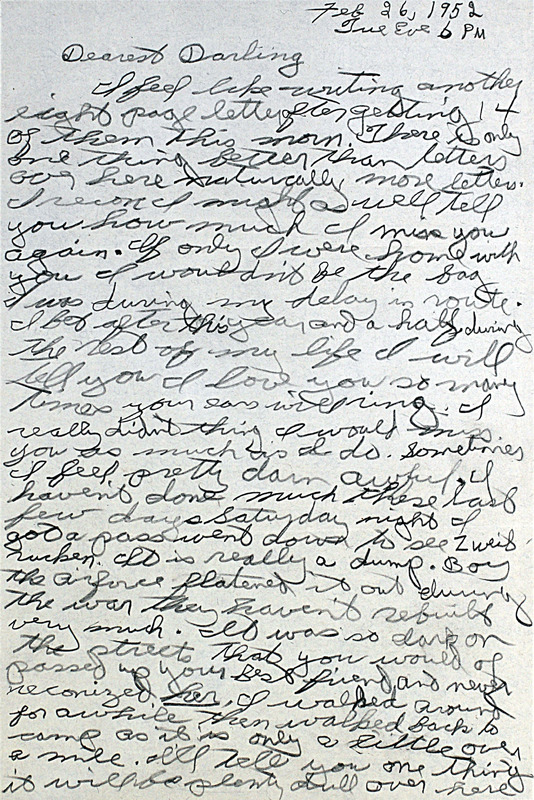 Feb 26, 1952
Tue Eve 6 PM
Dearest Darling
I feel like writing another
eight page letter after getting 14
of them this morn. There is only
one thing better than letters
over here naturically more letters.
I recon I might as well tell
you how much I miss you
again. If only I were home with
you I wouldn't be the bag
I was during my delay in route.
I bet after this year and a half during
the rest of my life I will
tell you I love you so many
times your ears will ring. I
really didn't thing I would miss
you as much as I do. Sometimes
I feel pretty darn awful. I
haven't done much these last
few days Saturday night I
got a pass went down to see Zweib-
rucken. It is really a dump. Boy
the airforce flatened it out during
the war they haven't rebuilt
very much. It was so dark on
the streets that you would of
passed up your best friend and never
reconized her. I walked around
for awhile then walked back to
camp as it is only a little over
a mile. I'll tell you one thing
it will be plenty dull over here